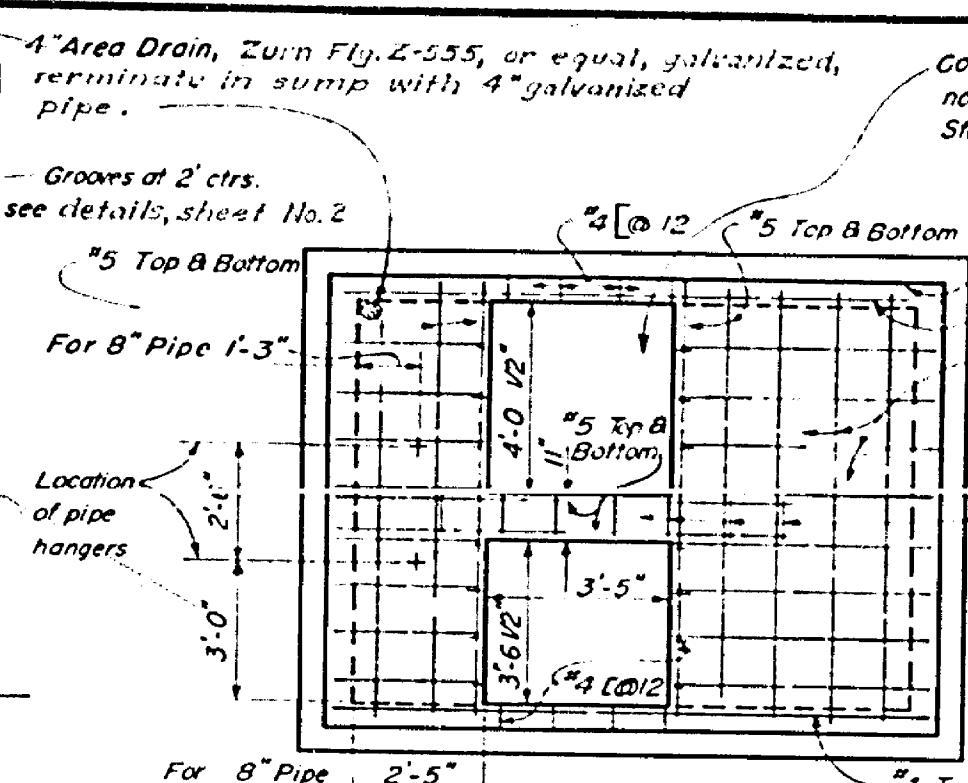 4" Area Drain, Zurn Fig. Z-555, or equal, galvanized,
terminate in sump with 4" galvanized
pipe.
Co
no
St
Grooves at 2' ctrs.
see details, sheet No. 2
#4 [@ 12
#5 Top & Bottom
#5 Top & Bottom
For 8" Pipe 1'-3"
4'-0 1/2"
11"
#5 Top &
Bottom
Location
of pipe
hangers
3'-0"
3'-5"
3'-6 1/2"
#4 [@12
For 8" Pipe 2'-5"